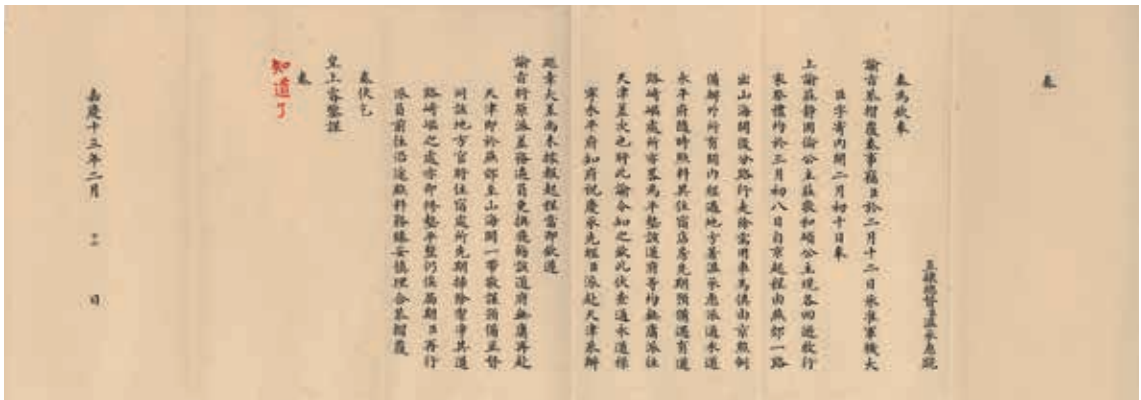 奏
直隸總督臣溫承惠跪
奏為欽奉
諭旨恭摺覆奏事竊臣於二月十二日承准軍機大
臣字寄內開二月初十日奉
上諭莊靜固倫公主莊敬和碩公主現各回遊牧行
家祭禮約於三月初八日自京起程由燕郊一路
出山海關復分路行走除需用車馬俱由京照例
備辦外所有關內經過地方著溫承惠派通永道
永平府隨時照料其住宿店房先期預備遇有道
路崎嶇處所亦畧為平墊該道府等均無庸派往
天津差次也將此諭令知之欽此伏查通永道祿
寧永平府知府祝慶承先經臣派赴天津恭辦
起程當即欽遵
諭旨將原派差務遴員更換飛飭該道府無庸再赴
天津即於燕郊至山海關一帶敬謹預備並督
同該地方官將住宿處所先期掃除潔淨其道
路崎嶇之處亦即修墊平整仍俟屆期臣再行
派員前往沿途照料務臻妥慎理合恭摺覆
奏伏乞
皇上睿鑒謹
奏
知道了
嘉慶十三年二月 日